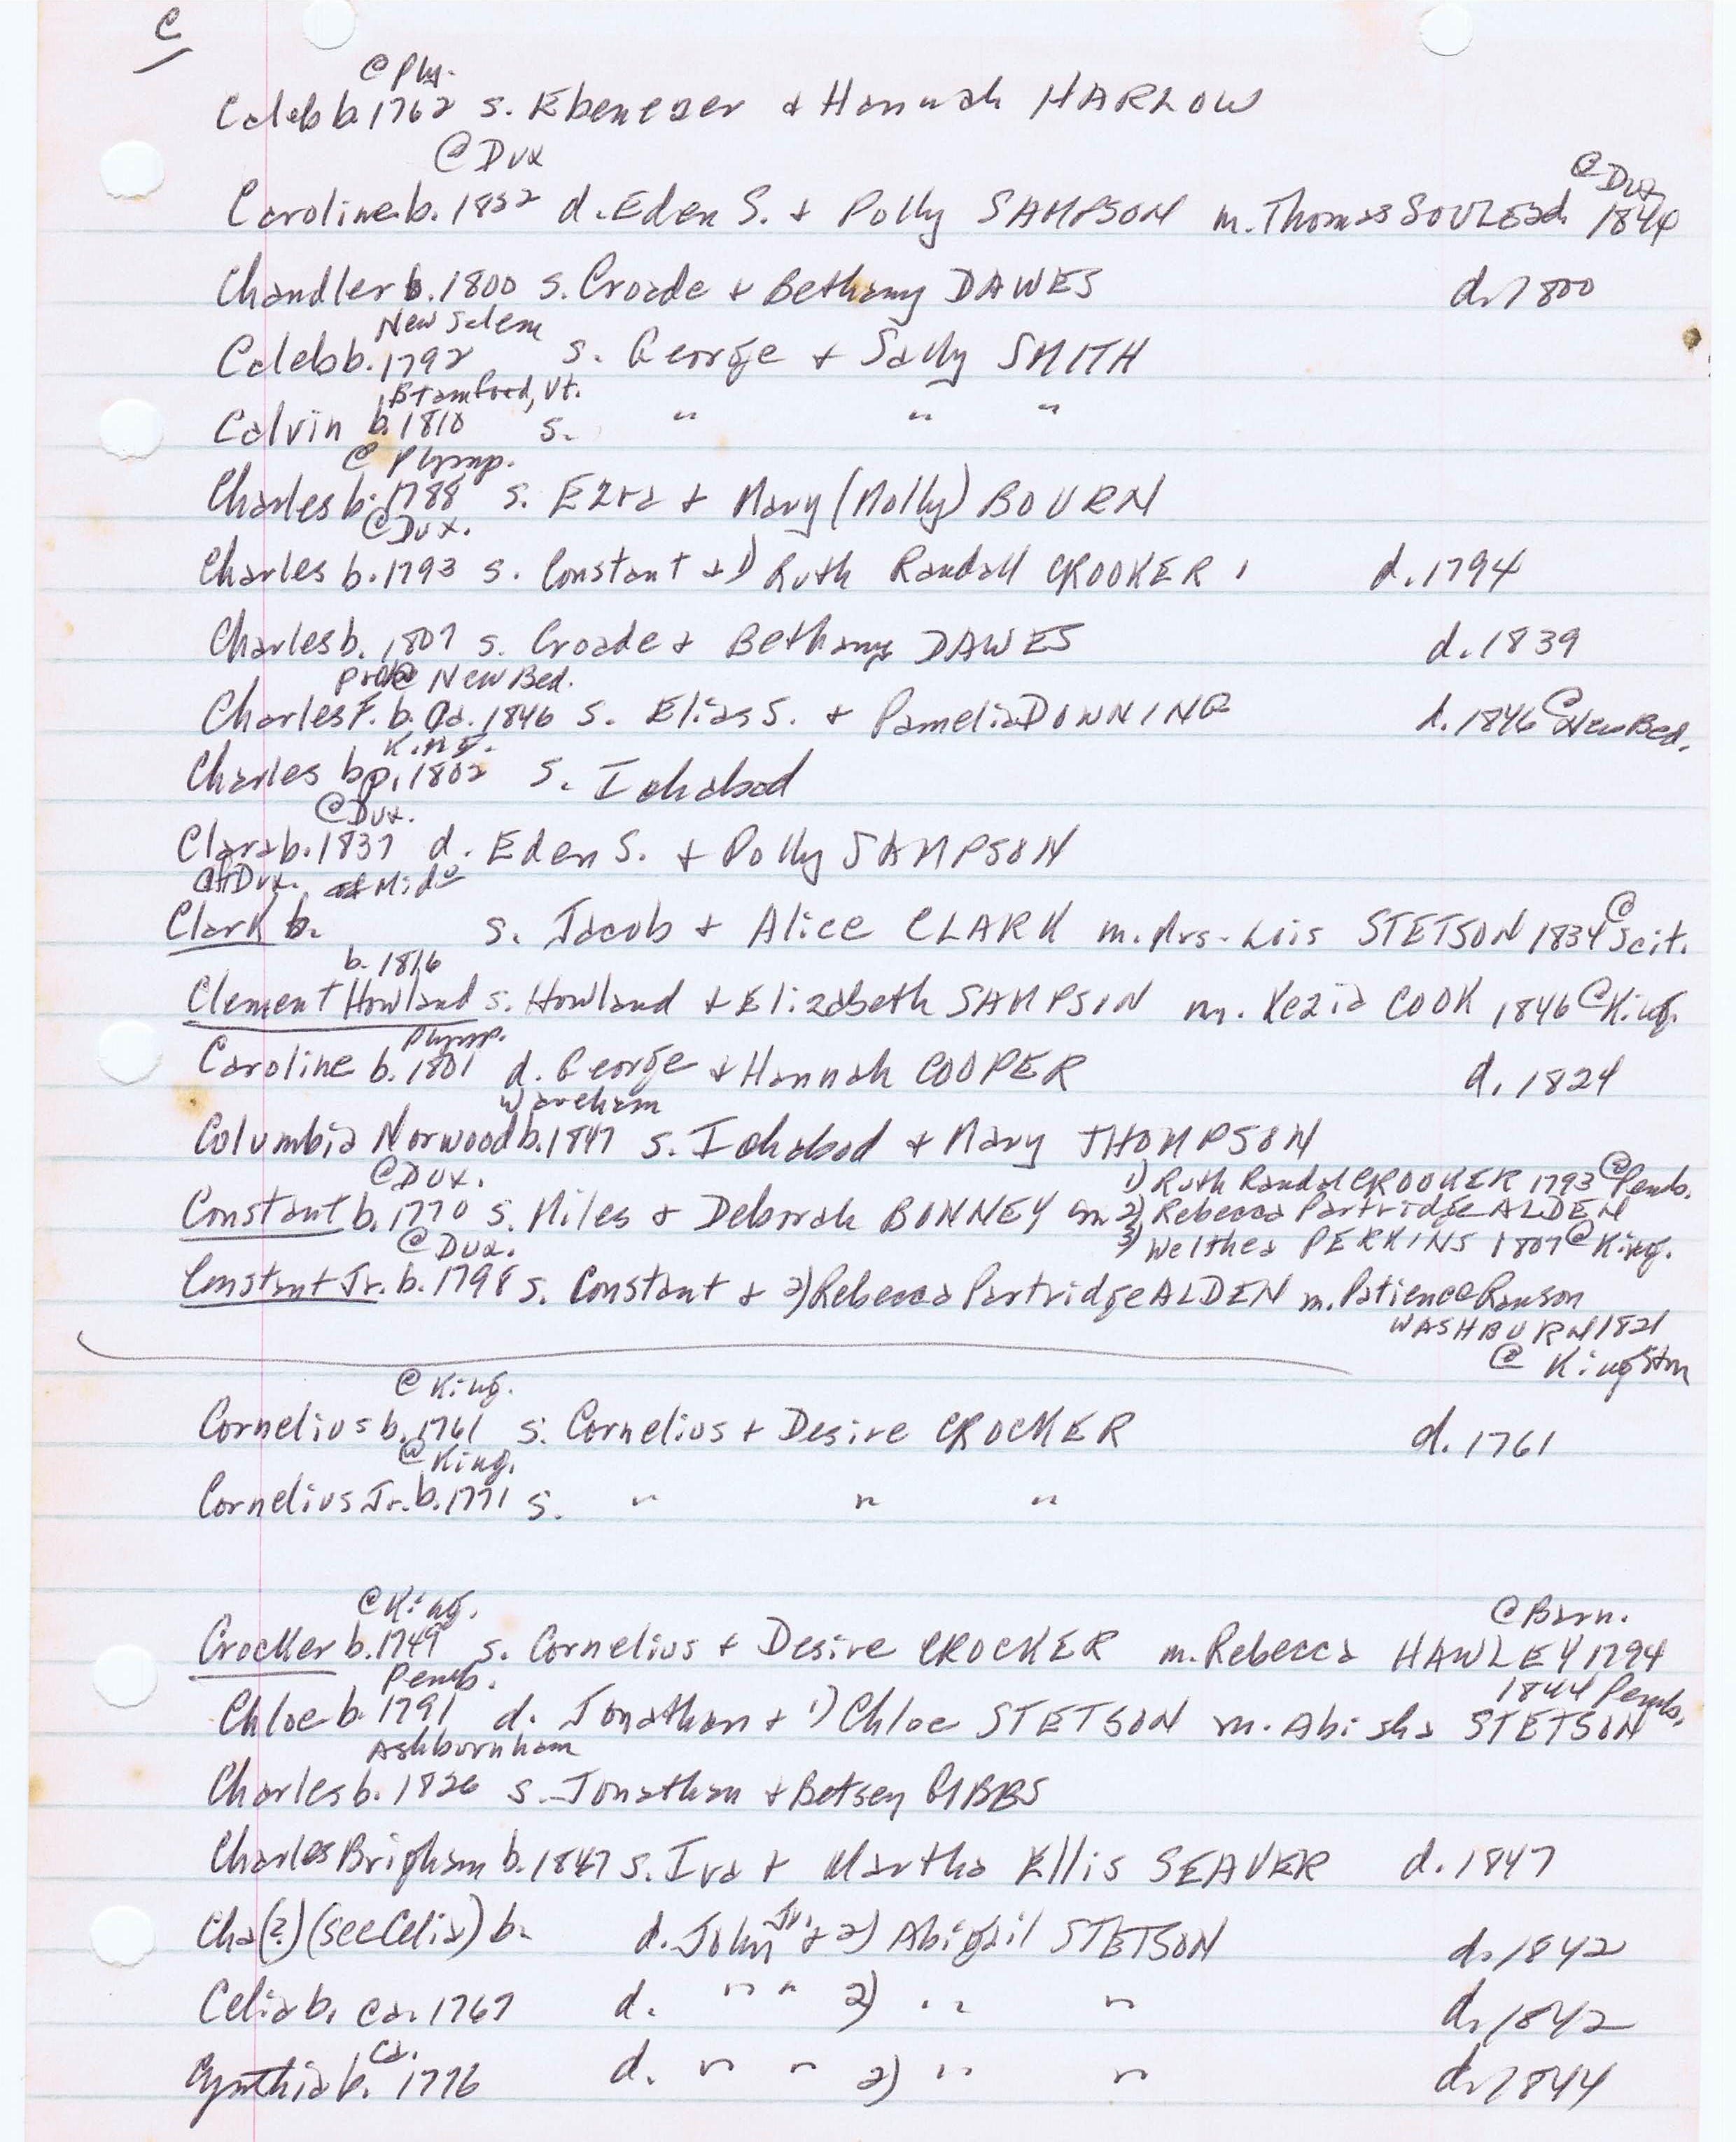 C
@ Ply.
Caleb b. 1762 s. Ebenezer + Hannah HARLOW
@ Dux
@ Dux
Caroline b. 1832 d. Eden S. + Polly SAMPSON m. Thomas SOULE 2d. 1844
Chandler b. 1800 s. Croade + Bethany DAWES d. 1800
New Salem
Caleb b. 1792 s. George + Sally SMITH
Stamford, Vt.
Calvin b. 1810 s. " " "
@ Plymp.
Charles b. 1788 s. Ezra + Mary (Molly) BOURN
@ Dux.
Charles b. 1793 s. Constant + 1) Ruth Randall CROOKER d. 1794
Charles b. 1807 s. Croade + Bethany DAWES d. 1839
prob @ New Bed.
Charles F. b. ca. 1846 s. Elias S. + Pamelia DOWNING d. 1846 @ New Bed.
King.
Charles bp. 1802 s. Ichabod
@ Dux.
Clara b. 1837 d. Eden S. + Polly SAMPSON
Dux. Mid
Clark b. s. Jacob + Alice CLARK m. Mrs. Lois STETSON 1834 @ Scit.
b. 1816
Clement Howland s. Howland + Elizabeth SAMPSON m. Kezia COOK 1846 @ King.
Plymp.
Caroline b. 1801 d. George + Hannah COOPER d. 1824
Wareham
Columbia Norwood b. 1847 s. Ichabod + Mary THOMPSON
@ Dux. 1) Ruth Randal CROOKER 1793 @ Pemb.
Constant b. 1770 s. Miles + Deborah BONNEY m 2) Rebecca Partridge ALDEN
@ Dux. 3) Welthea PERKINS 1807 @ King.
Constant Jr. b. 1798 s. Constant + 2) Rebecca Partridge ALDEN m. Patience Ranson
WASHBURN 1821
@ Kingston
@ King.
Cornelius b. 1761 s. Cornelius + Desire CROCKER d. 1761
@ King.
Cornelius Jr. b. 1771 s. " " "
@ King. @ Barn.
Crocker b. 1749 s. Cornelius + Desire CROCKER m. Rebecca HAWLEY 1794
Pemb. 1844 Pemb.
Chloe b. 1791 d. Jonathan + 1) Chloe STETSON m. Abisha STETSON
Ashburnham
Charles b. 1826 s. Jonathan + Betsey GIBBS
Charles Brigham b. 1847 s. Ira + Martha Ellis SEAVER d. 1847
Cha(?) (see Celia) b. d. John Jr. + 2) Abigail STETSON d. 1842
Celia b. ca. 1767 d. " " 2) " " d. 1842
ca.
Cynthia b. 1776 d. " " 2) " " d. 1844